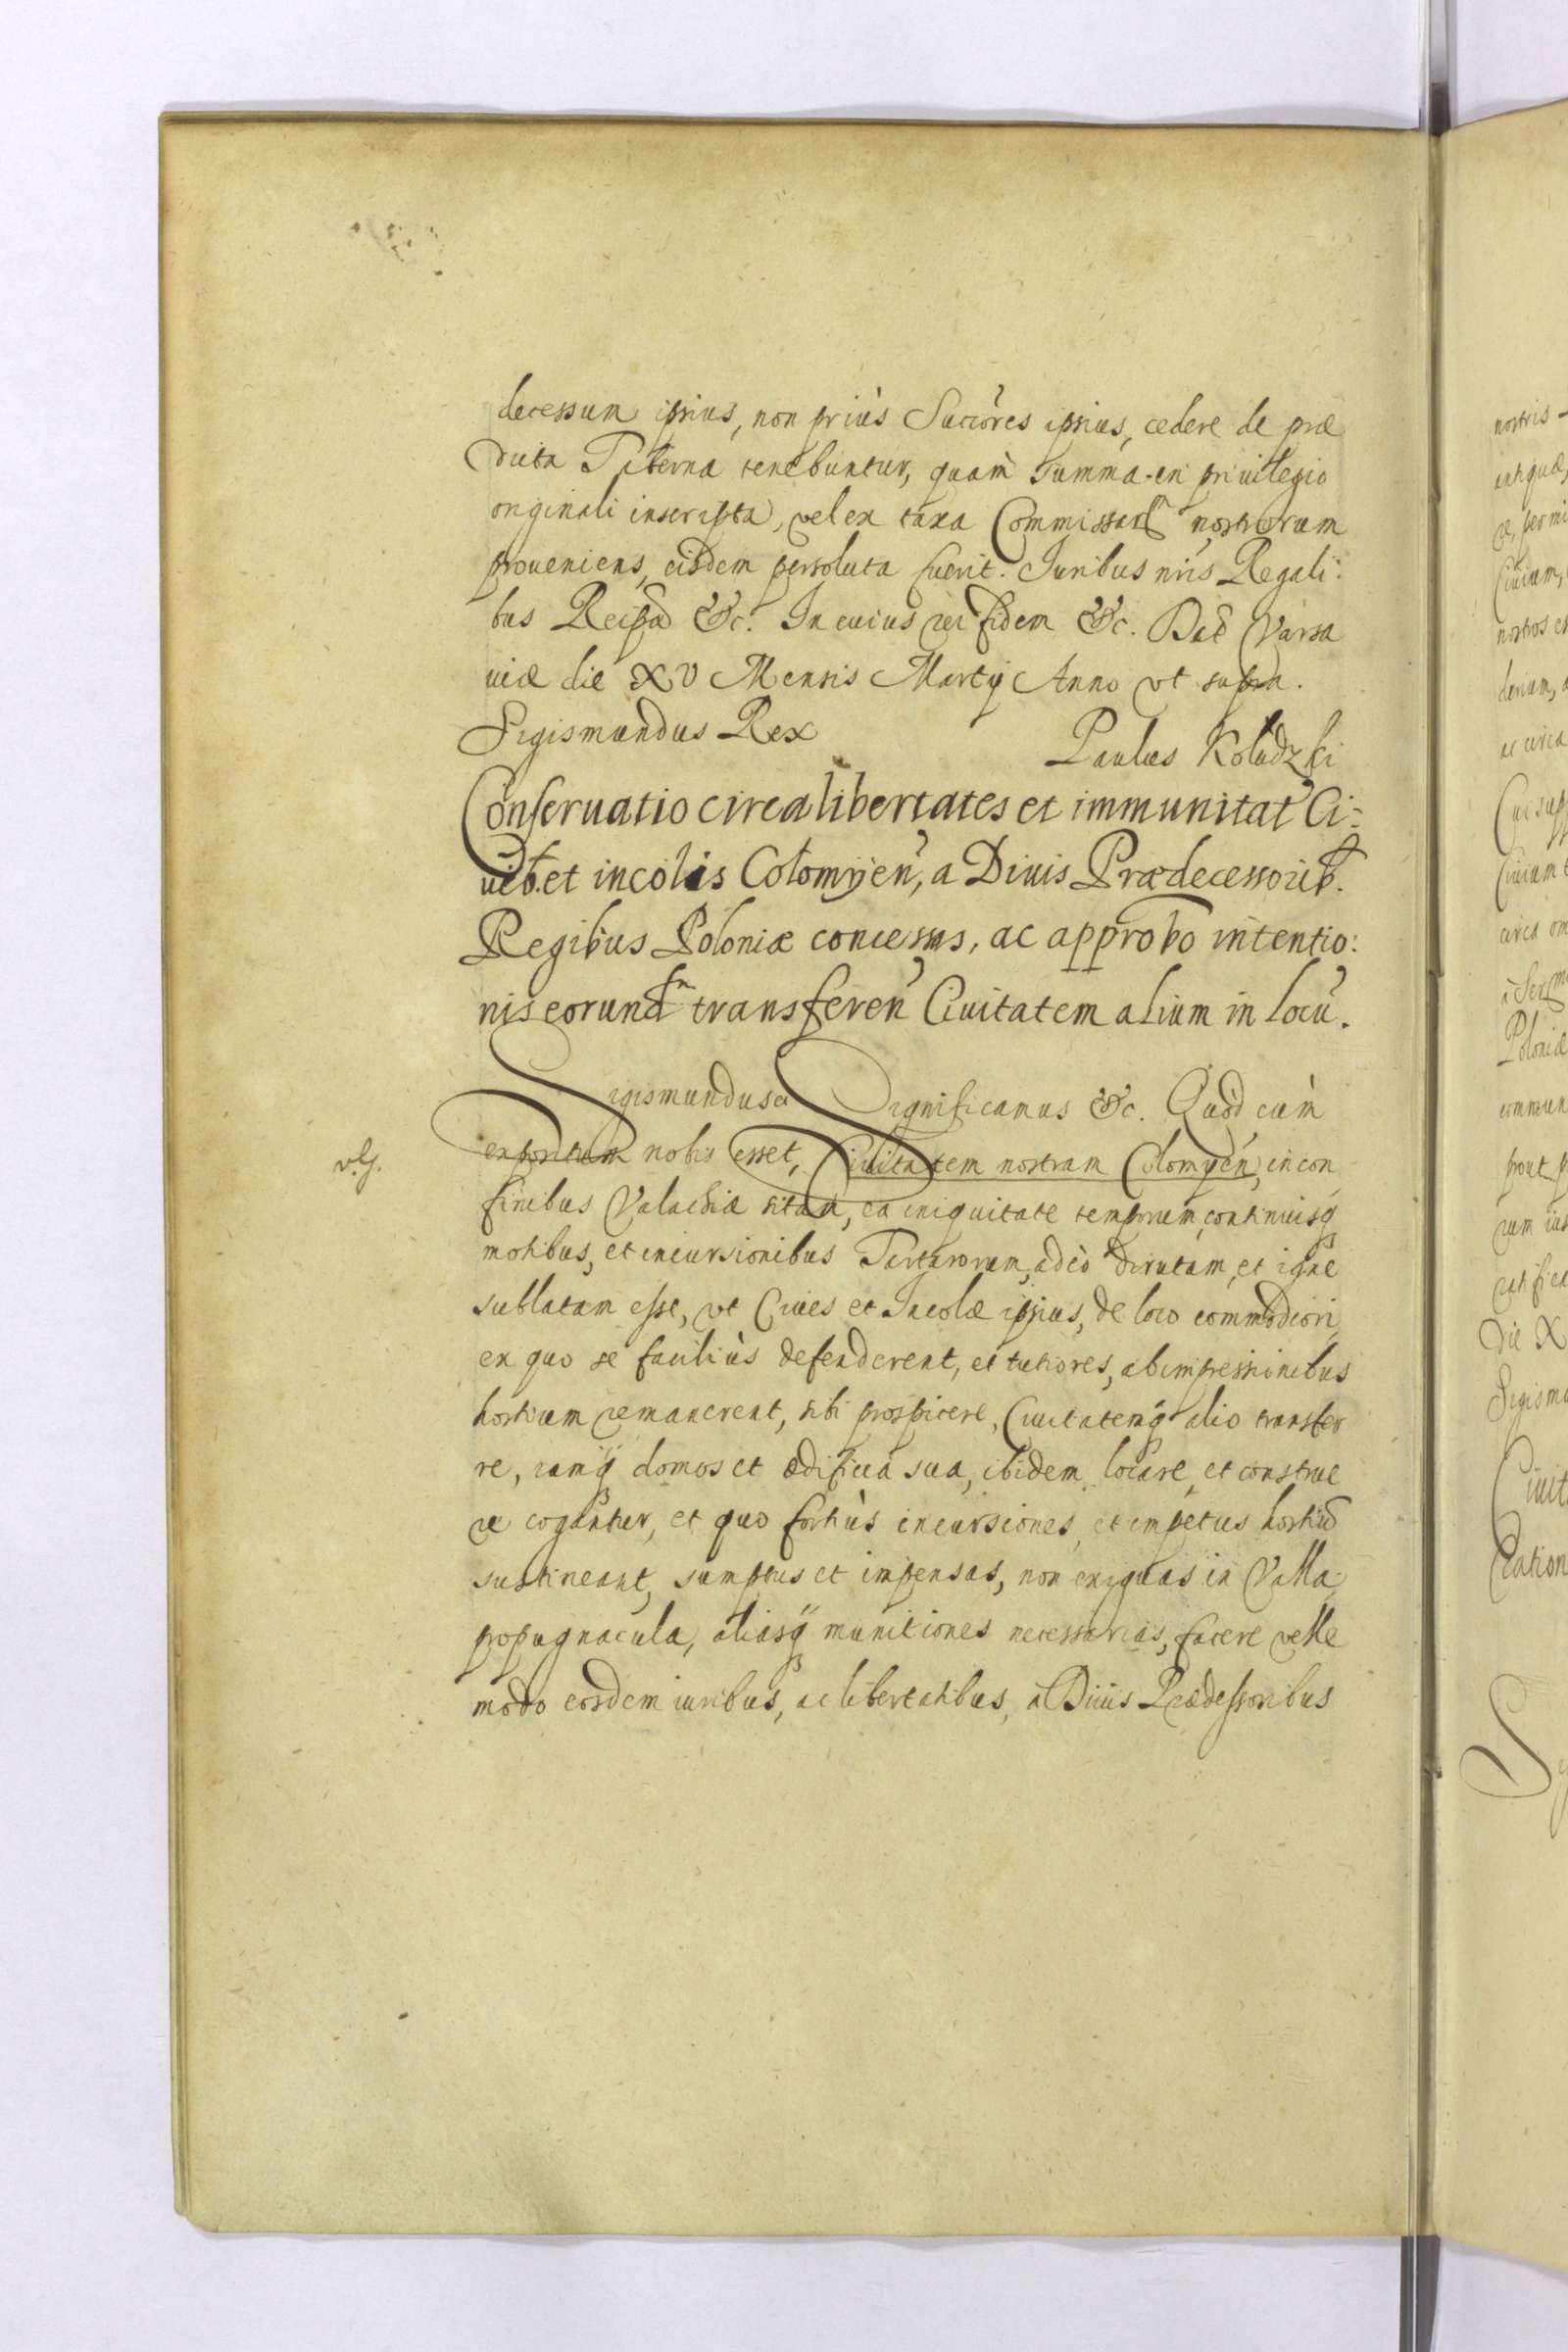 decessum ipsius, non priùs Succõres ipsius, cedere de præ
dicta Taberna tenebuntur, quam summa in priuilegio
originali inscripta, vel ex taxa Commissar nostrorum
proueniens, eisdem persoluta fuerit. Iuribus nris Regali:
bus Reipa &c. In cuius rei fidem &c. Dat Varsa
uiæ die XV Mensis Martij Anno vt supra.
Sigismundus Rex
Paulus Koludzki
Conseruatio circa libertates et immunitat Ci:
uib. et incolis Colomijen, a Diuis Prædecessorib.
Regibus Poloniæ concessis, ac approbo intentio:
nis eorund transferen Ciuitatem alium in locu.
Sigismundus Significamus &c. Quòd cùm
v.g.
expositum nobis esset, Ciuitatem nostram Colomyen, in con
finibus Valachiæ sitam, ea iniquitate temporum, continuisq
motibus, et incursionibus Tartarorum, adeò dirutam, et igne
sublatam esse, vt Ciues et Incolæ ipsius, de loco commodiori
ex quo se faciliùs defenderent, et tutiores, ab impressionibus
hostium remanerent, sibi prospicere, Ciuitatemq alio transfer
re, iamq domos et ædificia sua, ibidem locare, et construe
re cogantur, et quo fortiùs incursiones, et impetus hostiu
sustineant, sumptus et impensas, non exiguas in Valla
propugnacula, aliasq munitiones necessarias, facere velle
modo eosdem iuribus, ac libertatibus, a Diuis Prædessoribus
nostris
antiquæ,
Ciuium,
nostros
ac circa
Ciuium
circa om
Poloniæ
prout p
ratifica
Die X
Sigismu
Ciuit